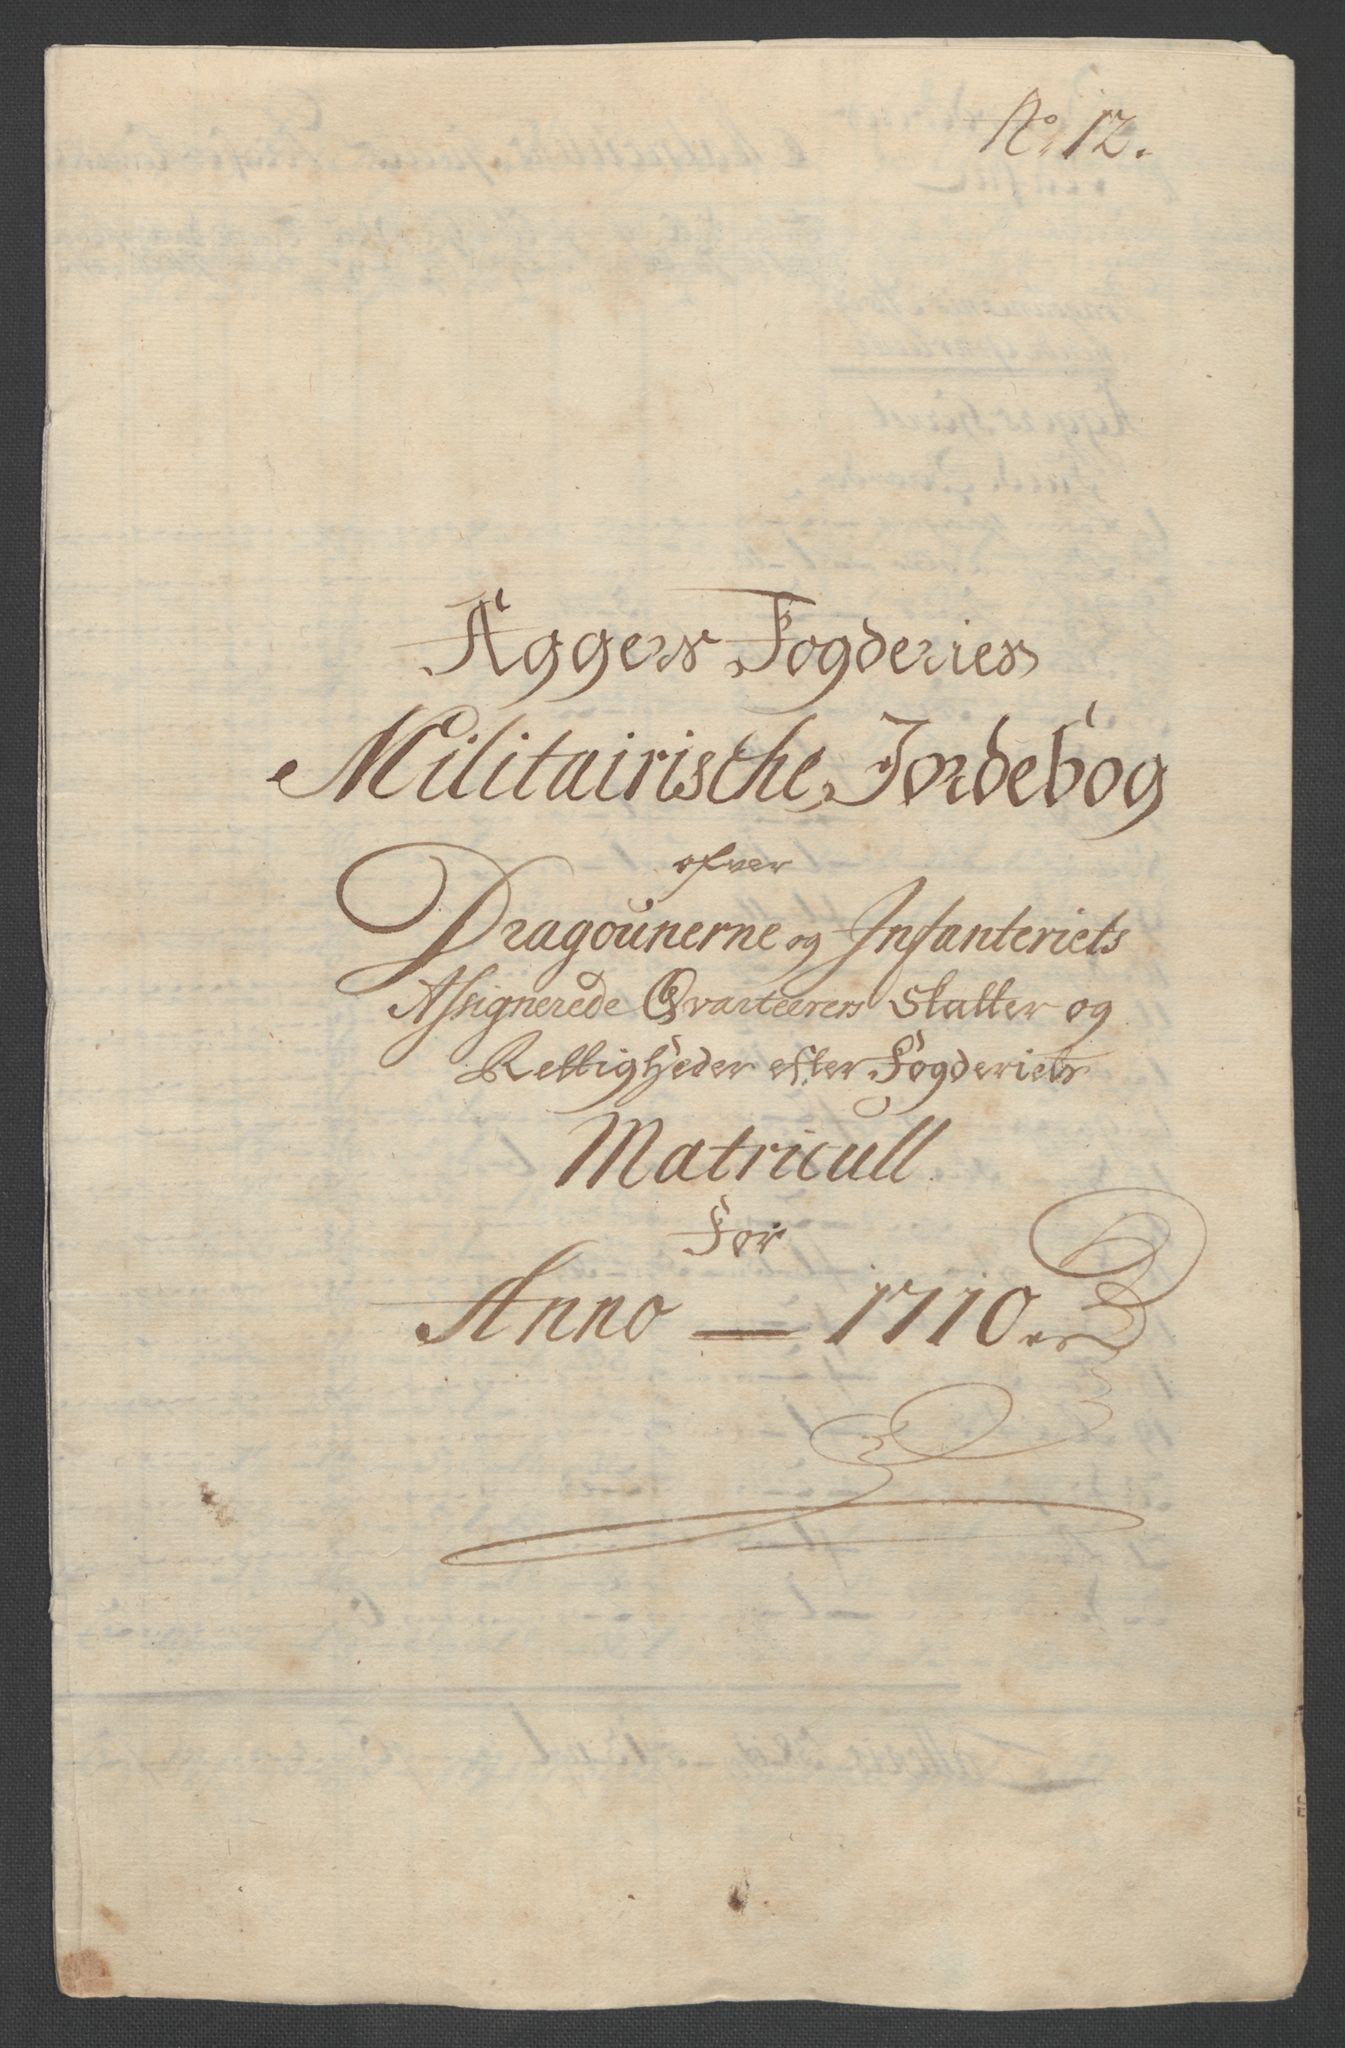 No. 12.
Aggers Fogderies
Militairische Jordebog
ofver
Dragounerne og Infanteriets
Assignerede Qvarteerers Skatter og
Rettigheder efter Fogderiets
Matricull
For
Anno — 1710